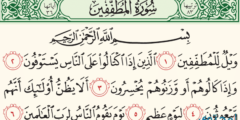 سُورَةُ المُطَفِّفِينَ
بِسْمِ اللَّهِ الرَّحْمَٰنِ الرَّحِيمِ
وَيْلٌ لِّلْمُطَفِّفِينَ ١ الَّذِينَ إِذَا اكْتَالُوا عَلَى النَّاسِ يَسْتَوْفُونَ ٢
وَإِذَا كَالُوهُمْ أَو وَّزَنُوهُمْ يُخْسِرُونَ ٣ أَلَا يَظُنُّ أُولَٰئِكَ أَنَّهُم
مَّبْعُوثُونَ ٤ لِيَوْمٍ عَظِيمٍ ٥ يَوْمَ يَقُومُ النَّاسُ لِرَبِّ الْعَالَمِينَ ٦